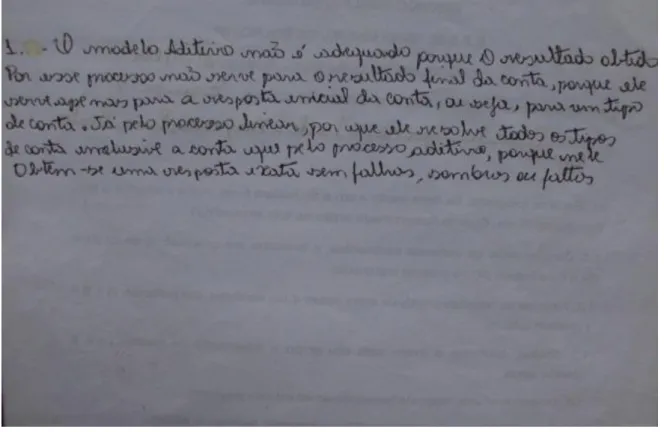 1. - O modelo Aditivo não é adequado porque O resultado obtido
Por esse processo não serve para o resultado final da conta, porque ele
serve apenas para a resposta inicial da conta, ou seja, para um tipo
de conta. Já pelo processo linear, por que ele resolve todos os tipos
de conta inclusive a conta que pelo processo aditivo, porque nele
Obtem-se uma resposta exata sem falhas, sombras ou faltas